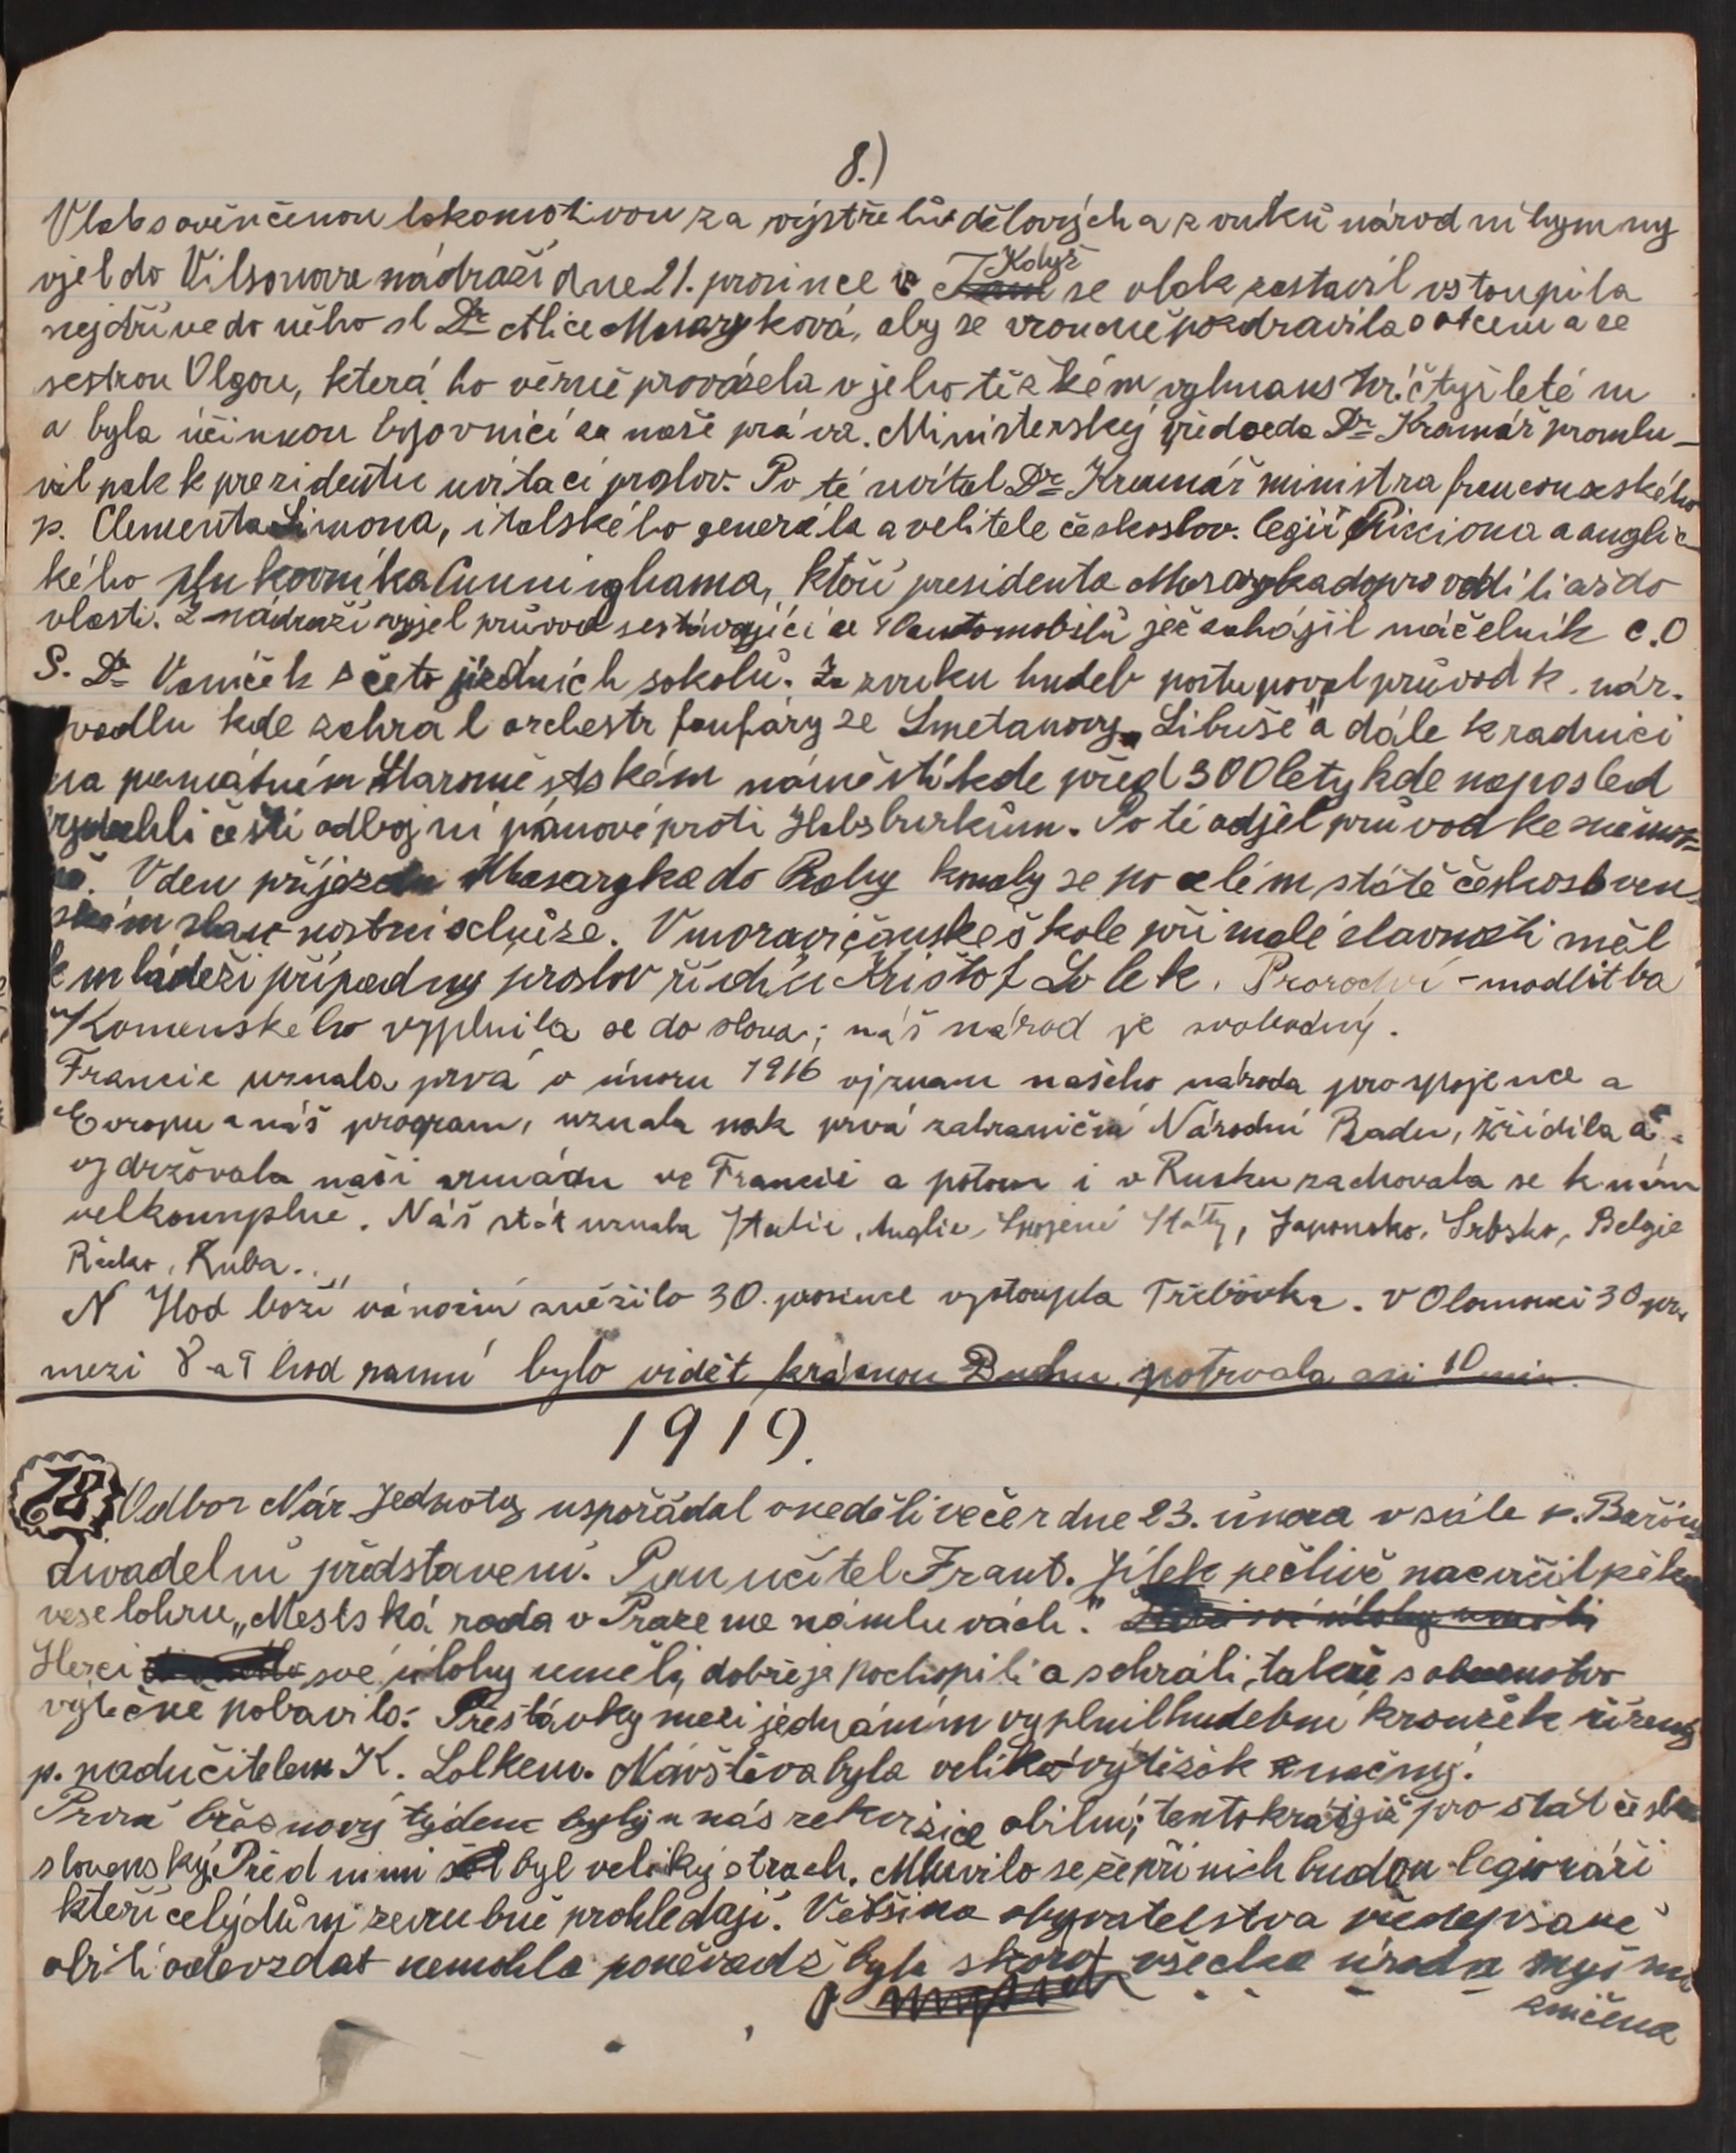 8.)
Vlak s ověnčenou lokomotivou za výstřelů dělových a zvuků národní hymny
vjel do Vilsonova nádraží dne 21. prosince v Když se vlak zastavil vstoupila
nejdříve do něho sl Dr Alice Masaryková, aby se vroucně pozdravila s otcem a se
sestrou Olgou, která ho věrně provázela v jeho těžkém vyhnanství čtyřletém
a byla účinnou bojovnicí za naše práva. Ministerský předseda Dr Kramář promlu-
vil pak k prezidentu uvítací proslov. Po té uvítal Dr Kramář ministra francouzského
p. Clementa Simona, italského generála a velitele českoslov. legií Picciona a anglic-
kého plukovníka Cunninghama, kteří presidenta Masaryka doprovodili až do
vlasti. Z nádraží vyjel průvod sestávající ze 10 automobilů jež zahájil náčelník č. O
S. Dr Vaníček s četo jízdních sokolů. Za zvuku hudeb postupoval průvod k nár.
vadlu kde zahrál orchestr fanfáry ze Smetanovy „Libuše" a dále k radnici
na památném Staroměstském náměstí kde před 300 lety kde naposled
vydechli čeští odbojní pánové proti Habsburkům. Po té odjel průvod ke sněmov-
ně. V den příjezdu Masaryka do Prahy konaly se po celém státě českosloven
ském slavnostní schůze. V moravičanské škole při malé slavnosti měl
k mládeži případný proslov řídící Krištof Lolek. Proroctví - modlitba
Komenského vyplnila se do slova; náš národ je svobodný.
Francie uznala prvá v únoru 1916 význam našeho národa pro spojence a
Evropu a náš program, uznala pak prvá zahraniční Národní Radu, zřídila a
vydržovala naši armádu ve Francii a potom i v Rusku zachovala se k nám
velkomyslně. Náš stát uznala Italie, Anglie, Spojené Státy, Japonsko, Srbsko, Belgie
Řecko, Kuba..
N Hod boží vánoční sněžilo 30. prosince vystoupla Třebůvka. V Olomouci 30 pr.
mezi 8 a 9 hod ranní bylo vidět krásnou Duhu, potrvala asi 10 min.
1919.
18 Odbor Nár Jednoty uspořádal v neděli večer dne 23. února v sále p.
divadelní představení. Pan učitel Frant. Jílek pečlivě nacvičil
veselohru „Mestská rada v Praze me námluvách."
Herci své úlohy uměli, dobře je pochopili a sehráli, takže s obecenstvo
výtečně pobavilo. Přestávky mezi jednáním vyplnil hudební kroužek řízený
p. nadučitelem K. Lolkem. Návštěva byla veliká výtěžek značný.
Prvá březnový týden byly u nás rekvizice obilní; tentokrát již pro stát česko
slovenský. Před nimi byl veliký strach. Mluvilo se že při nich budou legionáři
kteří celý dům zevrubně prohledají. Většina obyvatelstva předepsané
obilí odevzdat nemohla poněvadž byla skoro všecka úroda myšmi
zničena